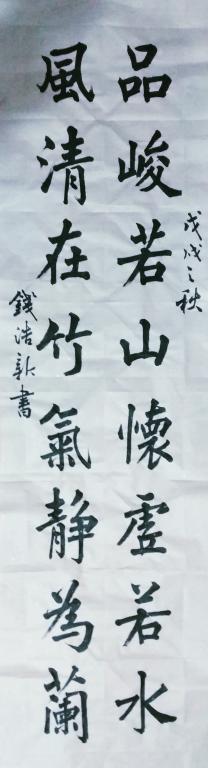 品峻若山懷虛若水
戊戌之秋
風清在竹氣靜為蘭
錢浩新書